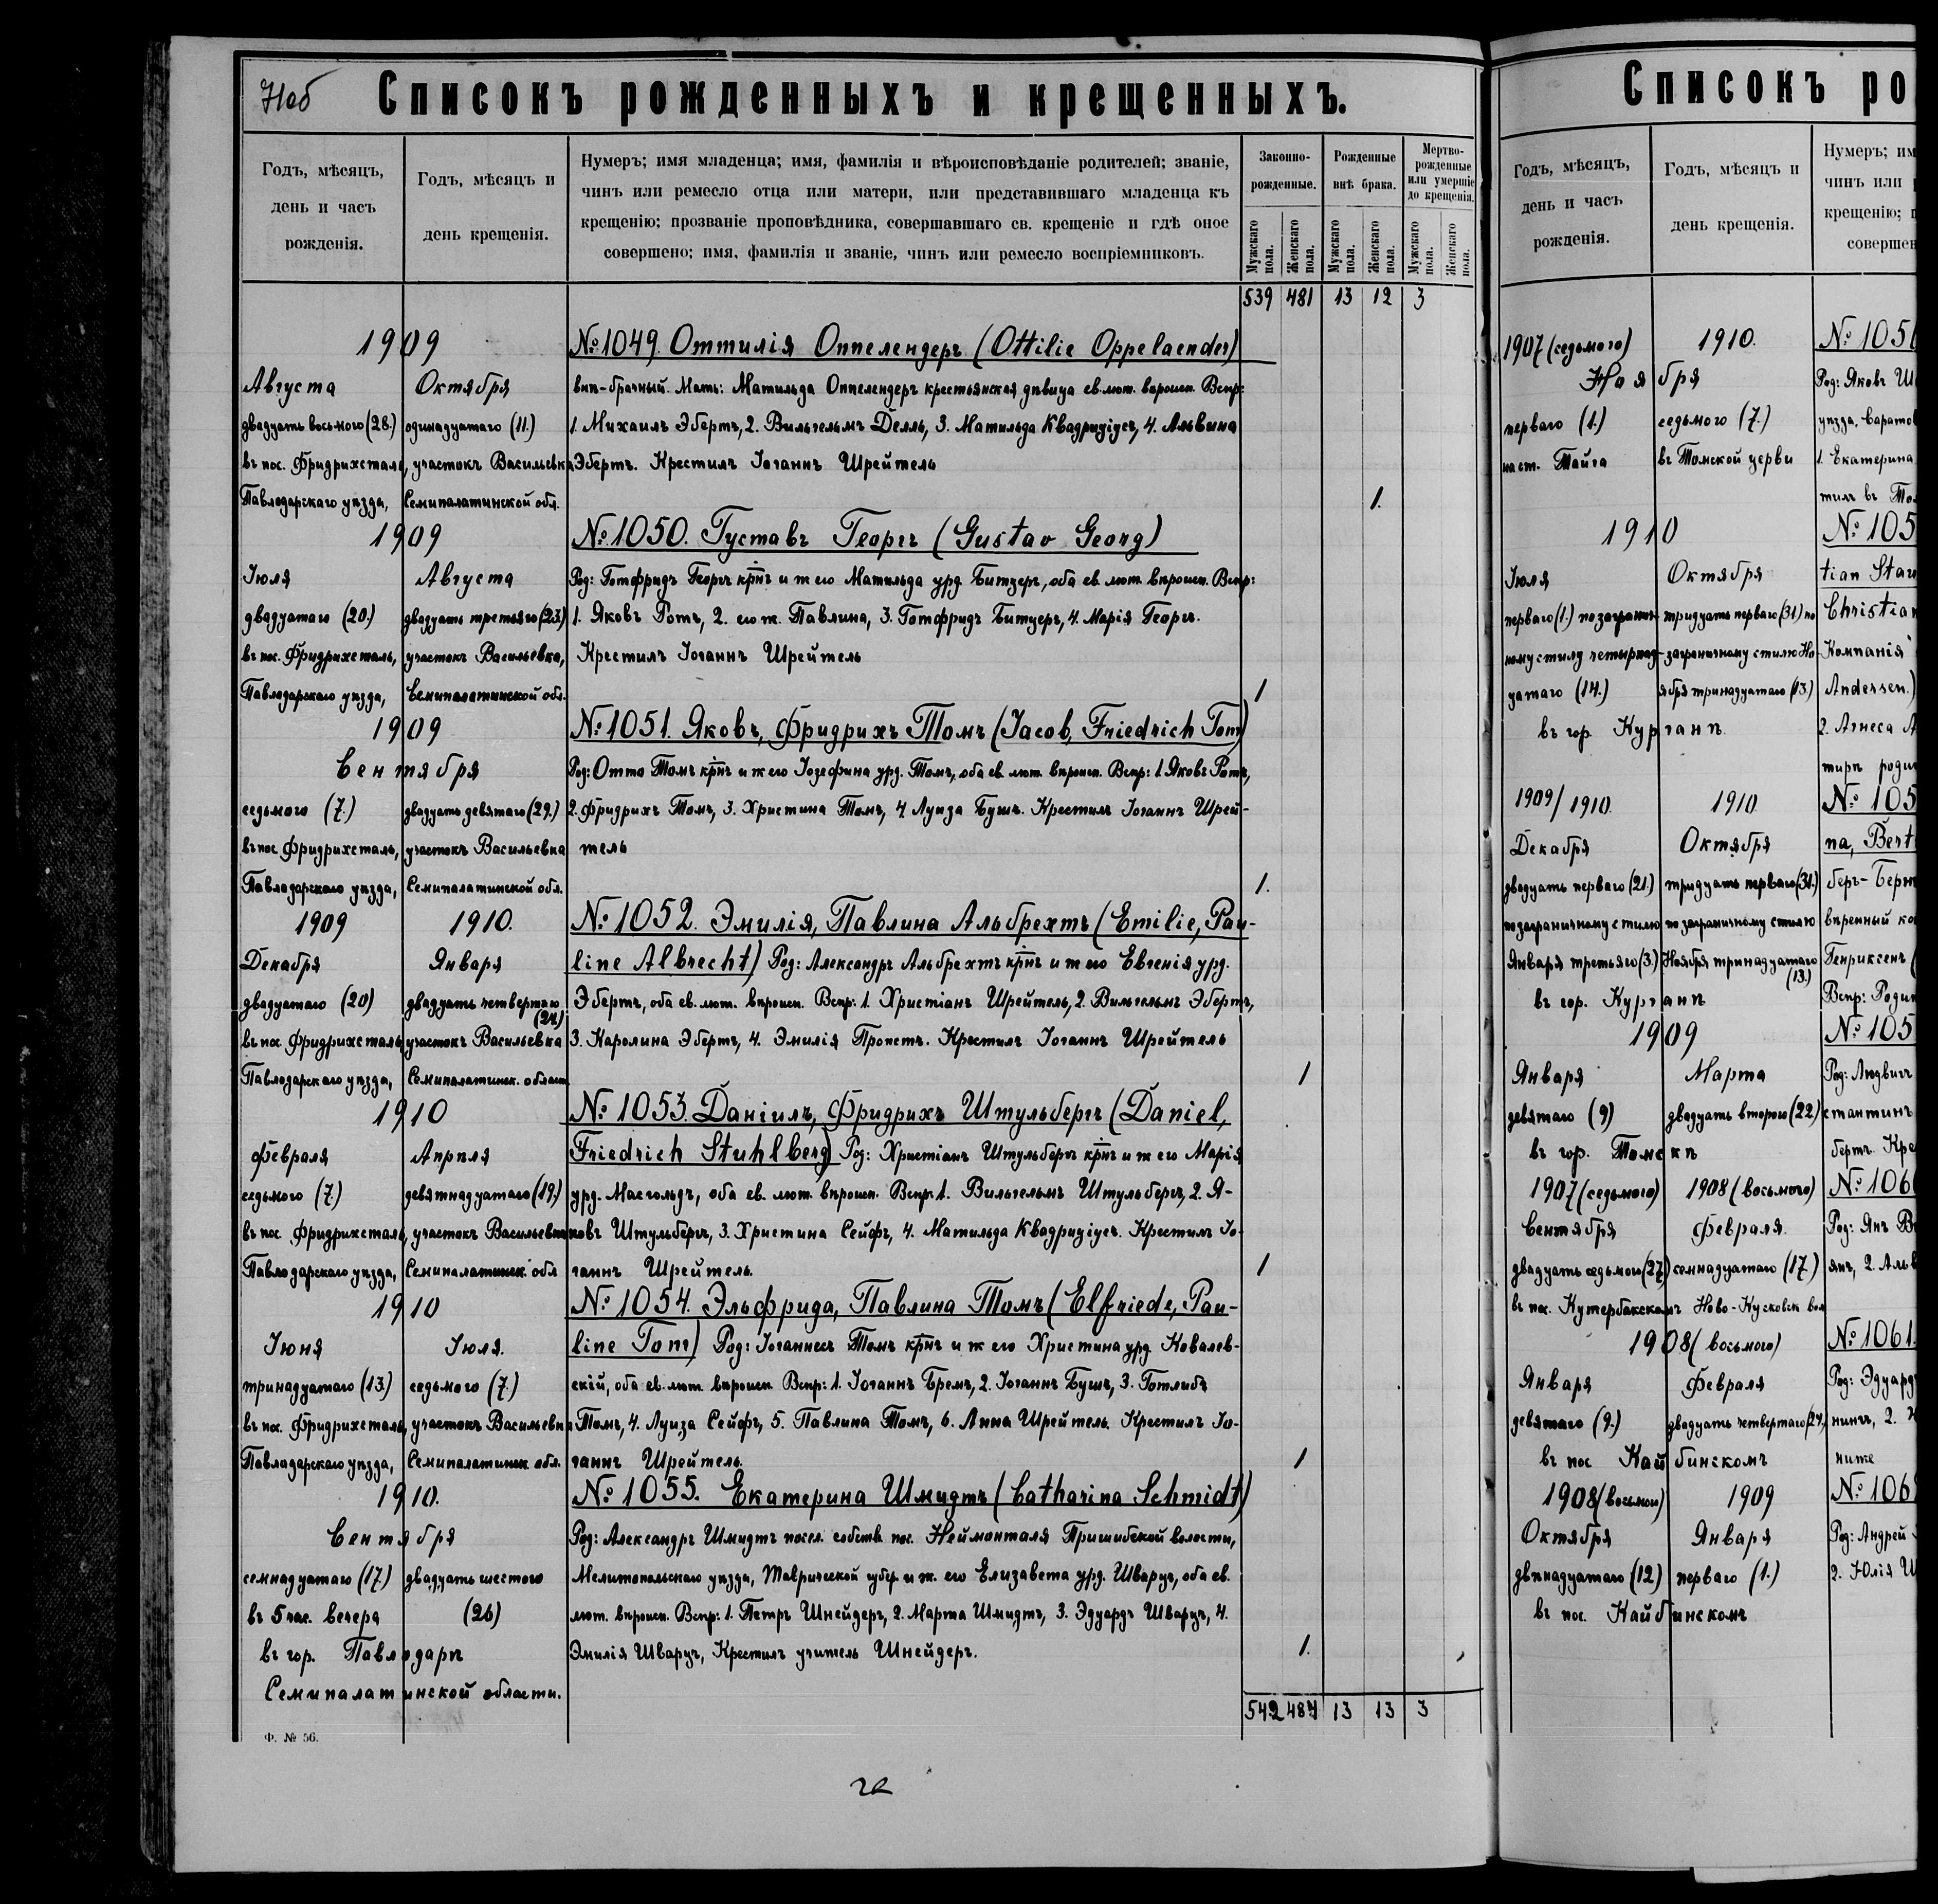 Списокъ рожденныхъ и крещенныхъ.
Годъ, мѣсяцъ,
день и часъ
рожденія.
Годъ, мѣсяцъ и
день крещенія.
Нумеръ; имя младенца; имя, фамилія и вѣроисповѣданіе родителей; званіе,
чинъ или ремесло отца или матери, или представившаго младенца къ
крещенію; прозваніе проповѣдника, совершавшаго св. крещеніе и гдѣ оное
совершено; имя, фамилія и званіе, чинъ или ремесло воспріемниковъ.
Законно-
рожденные.
Рожденные
внѣ брака.
Мертво-
рожденные
или умершіе
до крещенія.
Мужскаго пола.
Женскаго пола.
Мужскаго пола.
Женскаго пола.
Мужскаго пола.
Женскаго пола.
539 481 13 12 3
1909
Августа Октября
двадцать восьмого (28.) одинадцатаго (11.)
въ пос. Фридрихсталь, участокъ Васильевка
Павлодарскаго уѣзда, Семипалатинской обл.
№ 1049. Оттилія Оппелендеръ (Ottilie Oppelaender)
внѣ-брачный. Мать: Матильда Оппелендеръ крестьянская дѣвица ев. лют. вѣроисп. Вспр:
1. Михаилъ Эбертъ, 2. Вильгельмъ Делль, 3. Матильда Квадриціусъ, 4. Альвина
Эбертъ. Крестилъ Іоганнъ Шрейтель
1.
1909
Іюля Августа
двадцатаго (20.) двадцать третьяго (23.)
въ пос. Фридрихсталь, участокъ Васильевка,
Павлодарскаго уѣзда, Семипалатинской обл.
№ 1050. Густавъ Георгъ (Gustav Georg)
Род: Готфридъ Георгъ крнъ и ж его Матильда урд. Битзеръ, оба ев. лют. вѣроисп. Вспр:
1. Яковъ Ротъ, 2. его ж. Павлина, 3. Готфридъ Битцеръ, 4. Марія Георгъ.
Крестилъ Іоганнъ Шрейтель
1
1909
Сентября
седьмого (7.) двадцать девятаго (29.)
въ пос. Фридрихсталь, участокъ Васильевка
Павлодарскаго уѣзда, Семипалатинской обл.
№ 1051. Яковъ, Фридрихъ Томъ (Jacob, Friedrich Tom)
Род: Отто Томъ крнъ и ж его Іозефина урд. Томъ, оба ев. лют. вѣроисп. Вспр: 1. Яковъ Ротъ,
2. Фридрихъ Томъ, 3. Христина Томъ, 4. Луиза Бушъ. Крестилъ Іоганнъ Шрей-
тель
1.
1909 1910.
Декабря Января
двадцатаго (20) двадцать четвертаго (24)
въ пос. Фридрихсталь участокъ Васильевка
Павлодарскаго уѣзда, Семипалатинск. област
№ 1052. Эмилія, Павлина Альбрехтъ (Emilie, Pau-
line Albrecht) Род: Александръ Альбрехтъ крнъ и ж его Евгенія урд.
Эбертъ, оба ев. лют. вѣроисп. Вспр: 1. Христіанъ Шрейтель, 2. Вильгельмъ Эбертъ,
3. Каролина Эбертъ, 4. Эмилія Пропстъ. Крестилъ Іоганнъ Шрейтель
1
1910
Февраля Апрѣля
седьмого (7.) девятнадцатаго (19.)
въ пос. Фридрихсталь, участокъ Васильевка
Павлодарскаго уѣзда, Семипалатинск. обл
№ 1053. Даніилъ, Фридрихъ Штульбергъ (Daniel,
Friedrich Stuhlberg) Род: Христіанъ Штульбергъ крнъ и ж его Марія
урд. Масгольдъ, оба ев. лют. вѣроисп. Вспр: 1. Вильгельмъ Штульбергъ, 2. Я-
ковъ Штульбергъ, 3. Христина Сейфъ, 4. Матильда Квадриціусъ. Крестилъ Іо-
ганнъ Шрейтель.
1
1910
Іюня Іюля.
тринадцатаго (13.) седьмого (7.)
въ пос. Фридрихсталь, участокъ Васильевка
Павлодарскаго уѣзда, Семипалатинск. обл.
№ 1054. Эльфрида, Павлина Томъ (Elfriede, Pau-
line Tom) Род: Іоганнесъ Томъ крнъ и ж его Христина урд. Ковалев-
скій, оба ев. лют. вѣроисп. Вспр: 1. Іоганнъ Бремъ, 2. Іоганнъ Бушъ, 3. Готлибъ
Томъ, 4. Луиза Сейфъ, 5. Павлина Томъ, 6. Анна Шрейтель. Крестилъ Іо-
ганнъ Шрейтель.
1
1910.
Сентября
семнадцатаго (17.) двадцать шестого
въ 5 час. вечера (26)
въ гор. Павлодарѣ
Семипалатинской области.
№ 1055. Екатерина Шмидтъ (Catharina Schmidt)
Род: Александръ Шмидтъ посел. собств. пос. Нейманталя Пришибской волости,
Мелитопольскаго уѣзда, Таврической губер. и ж. его Елизавета урд. Шварцъ, оба ев.
лют. вѣроисп. Вспр: 1. Петръ Шнейдеръ, 2. Марта Шмидтъ, 3. Эдуардъ Шварцъ, 4.
Эмилія Шварцъ, Крестилъ учитель Шнейдеръ.
1.
542 484 13 13 3
Ф. № 56.
Списокъ ро
Годъ, мѣсяцъ,
день и часъ
рожденія.
Годъ, мѣсяцъ и
день крещенія.
Нумеръ; им
чинъ или
крещенію;
совершен
1907 (седьмого) 1910. № 105
Ноября Род: Яковъ Ш
перваго (1.) седьмого (7.) уѣзда, Саратов
на ст. Тайга въ Томской церкви 1. Екатерина
тилъ въ То
1910 № 105
Іюля Октября tian Star
перваго (1.) по загранич- тридцать перваго (31) по Christian
ному стилу четырнад- заграничному стилю Но- Компанія
цатаго (14.) ября тринадцатаго (13.) Andersen.)
въ гор. Курганѣ. 2. Агнеса А
тиръ роди
1909/1910. 1910 № 105
Декабря Октября na, Bert
двадцать перваго (21.) тридцать перваго (31.) беръ-Берн
по заграничному стилю по заграничному стилю вѣренный ко
Января третьяго (3.) Ноября тринадцатаго (13.) Генриксенъ
въ гор. Курганѣ Вспр: Родит
1909 № 105
Января Марта Род: Людвигъ
девятаго (9) двадцать второго (22) стантинъ
въ гор. Томскѣ бертъ. Кре
1907 (седьмого) 1908 (восьмого) № 106
Сентября Февраля. Род: Янъ В
двадцать седьмого (27) семнадцатаго (17.) янъ, 2. Альв
въ пос. Кутербакскомъ Ново-Кусковск вол
1908 (восьмого) № 1061.
Января Февраля Род: Эдуард
девятаго (9.) двадцать четвертаго (24.) нингъ, 2.
въ пос Кайбинскомъ ниже
1908 (восьмого) 1909 № 106
Октября Января Род: Андрей
двѣнадцатаго (12) перваго (1.) 2. Юлія Ш
въ пос. Кайбинскомъ